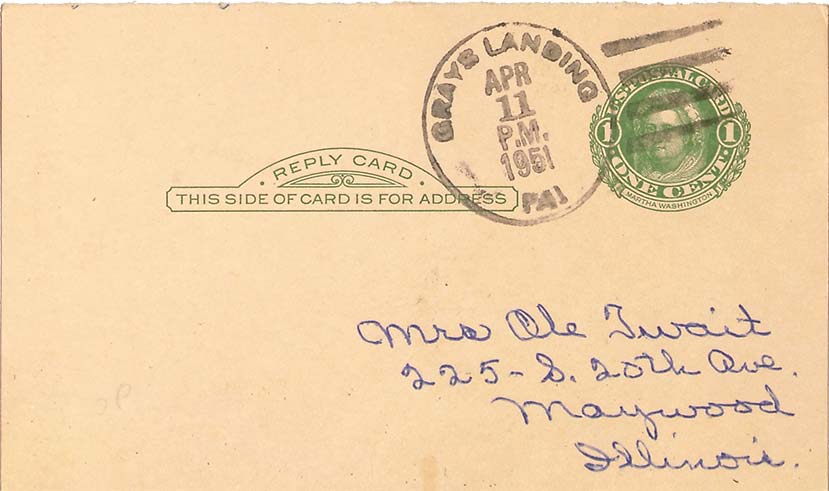 GRAYS LANDING
APR
11
P.M.
1951
PA.
U.S. POSTAL CARD
1 1
ONE CENT
MARTHA WASHINGTON
REPLY CARD
THIS SIDE OF CARD IS FOR ADDRESS
Mrs Ole Twait
225 - S. 20th Ave.
Maywood
Illinois.